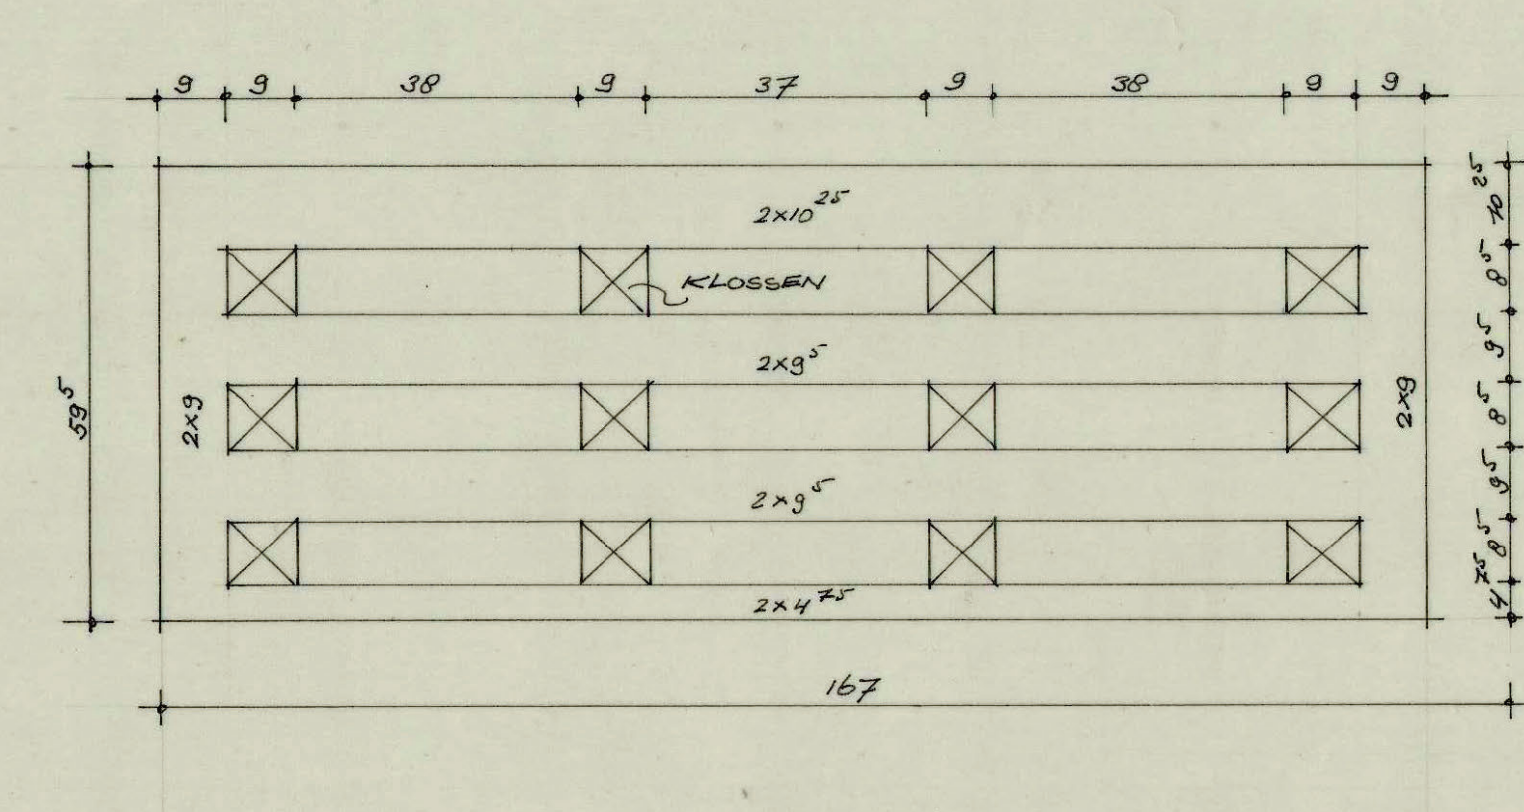 9 9 38 9 37 9 38 9 9
2×10²⁵
KLOSSEN
2×9⁵
2×9
2×9
2×9⁵
2×4⁷⁵
59⁵
10²⁵
8⁵
9⁵
8⁵
9⁵
8⁵
4⁷⁵
167